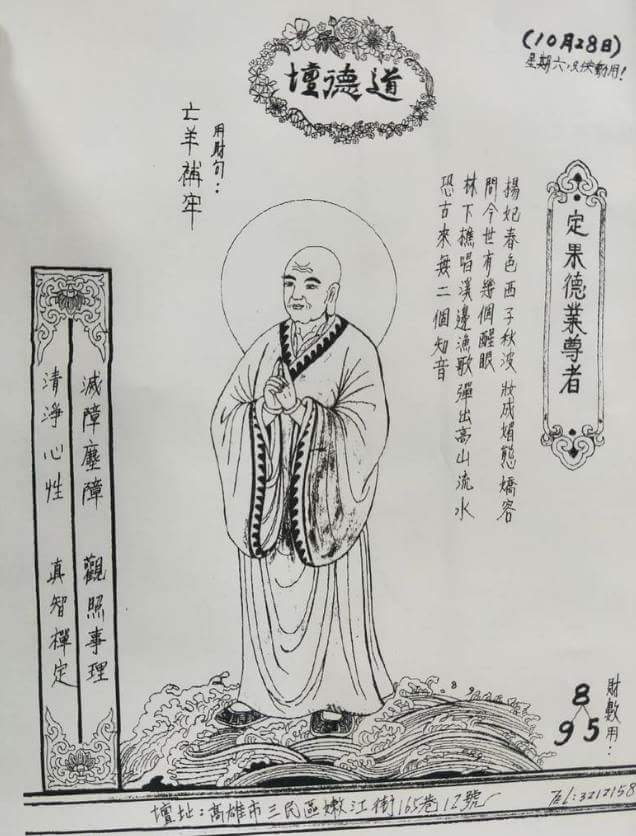 (10月28日)
星期六以後動用!
道德壇
定果德業尊者
揚妃春色西子秋波妝成媚態嬌容
問今世有幾個醒眼
林下樵唱溪邊漁歌彈出高山流水
恐古來無二個知音
用財句:
亡羊補牢
滅障塵障 觀照事理
清淨心性 真智禪定
財數用:
8
9 5
壇址:高雄市三民區嫩江街165巷12號
TEL:3212158